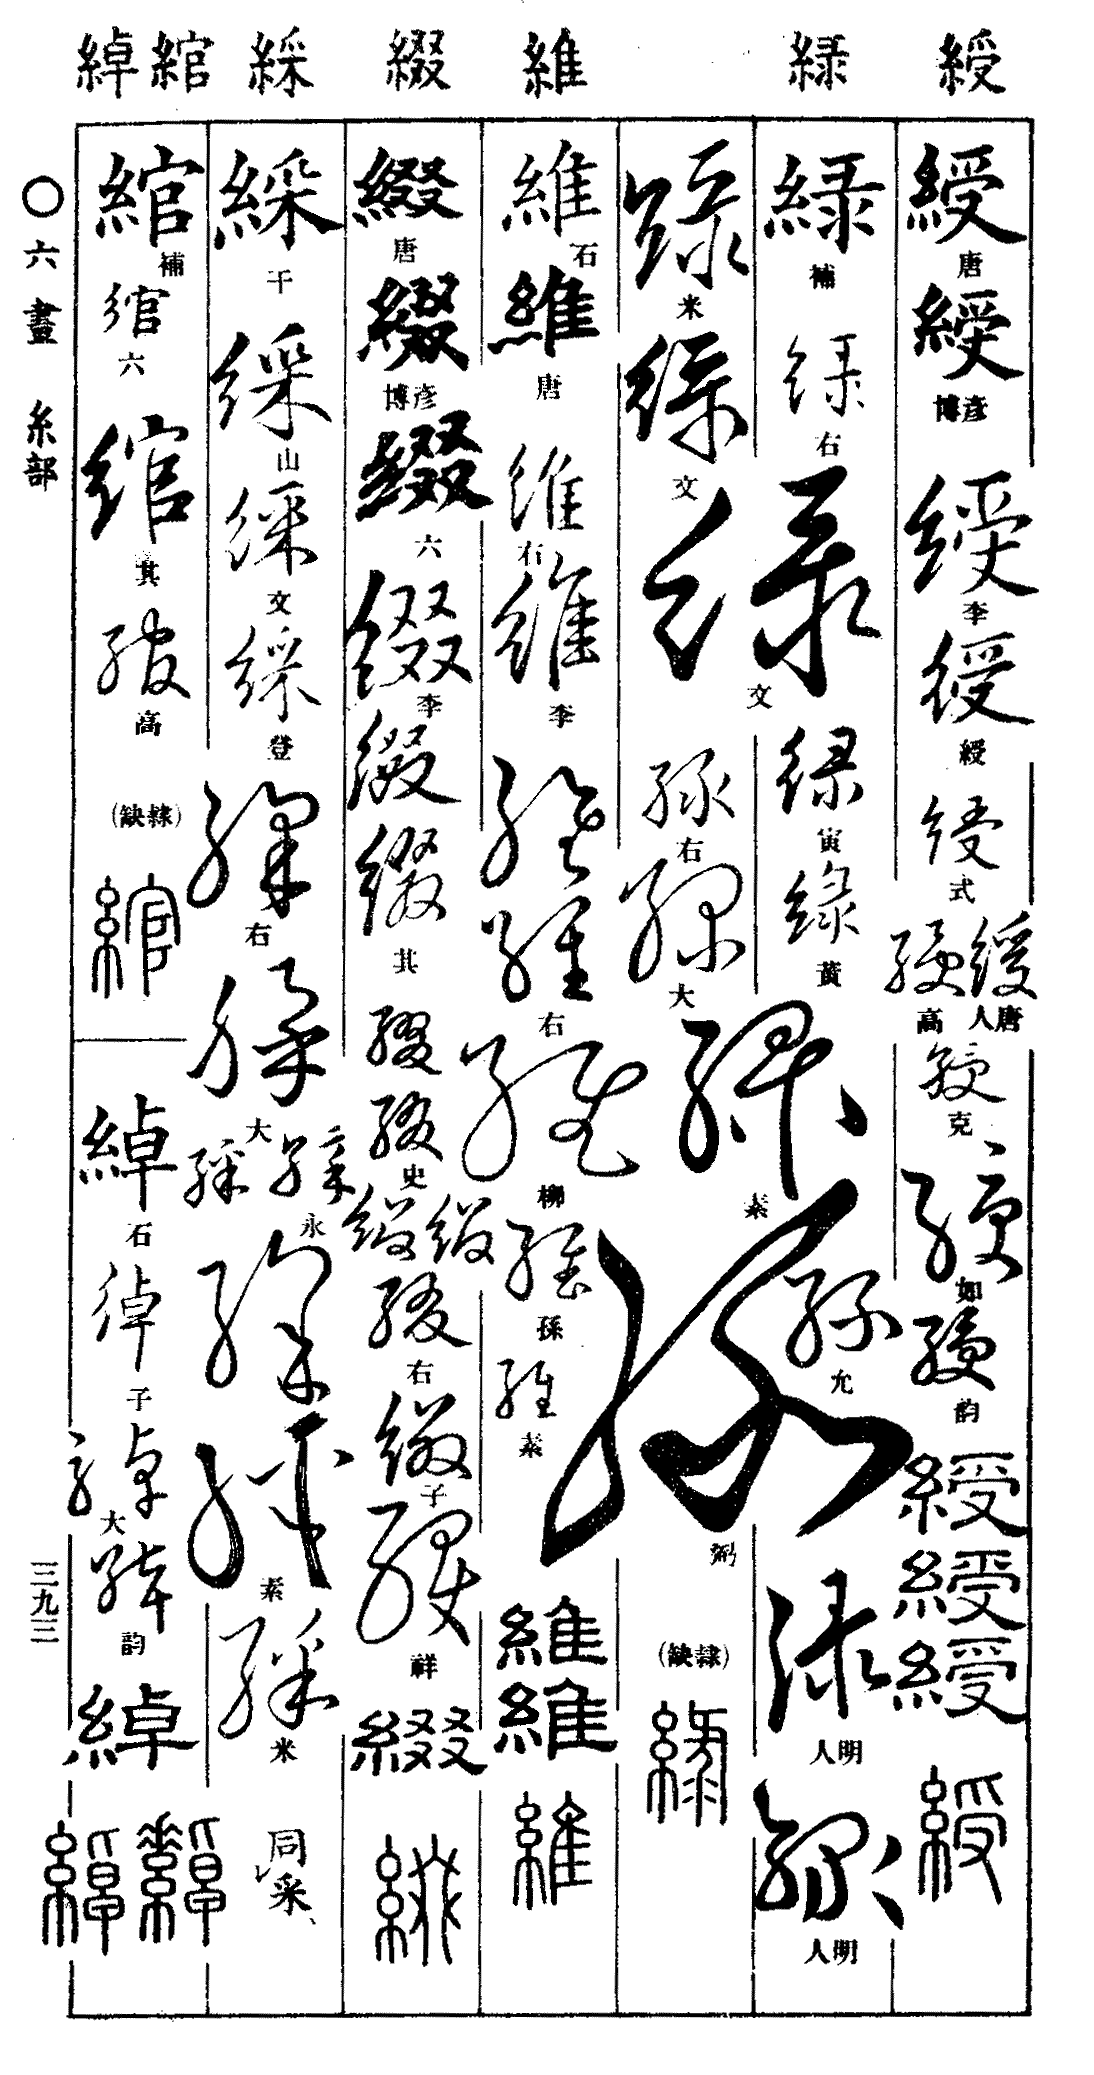 綬 緑 維 綴 綵 綰 綽
綬 唐 綬 彦博 綬 李 綬 綬 綬 式 綬 唐人 綬 高 綬 克 綬 如 綬 韵 綬 綬 綬 綬
緑 補 緑 右 緑 文 緑 寅 緑 黄 緑 素 緑 允 緑 明人 緑 明人
緑 米 緑 文 緑 右 緑 大 緑 弼 (缺隷) 緑
維 石 維 唐 維 右 維 李 維 維 右 維 柳 維 孫 維 素 維 維 維
綴 唐 綴 彦博 綴 六 綴 李 綴 綴 其 綴 綴 史 綴 綴 綴 右 綴 子 綴 祥 綴 綴
綵 千 綵 山 綵 文 綵 登 綵 右 綵 大 綵 綵 永 綵 綵 素 綵 米 同采
綰 補 綰 六 綰 其 綰 高 (缺隷) 綰
綽 石 綽 子 綽 大 綽 韵 綽 綽 綽
〇六畫 糸部
三九三